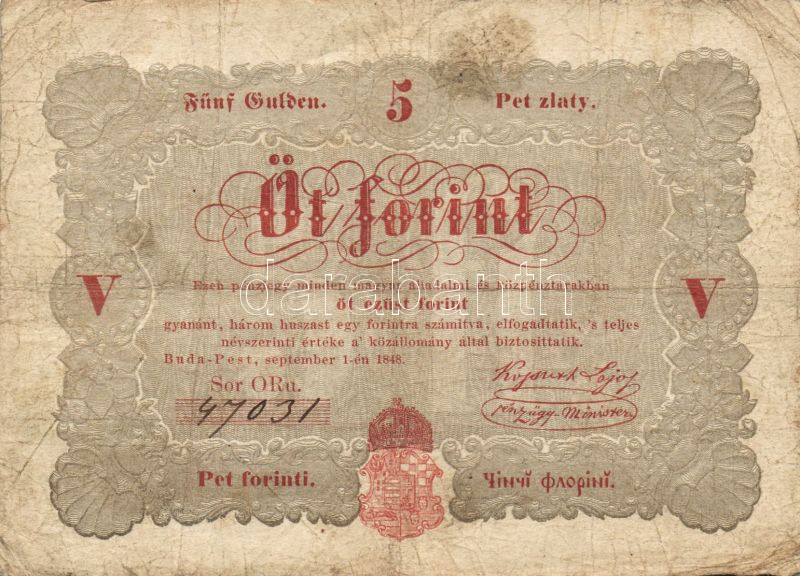 Fünf Gulden. 5 Pet zlaty.
Öt forint
V V
Ezen pénzjegy minden magyar álladalmi és közpénztárakban
öt ezüst forint
gyanánt, három huszast egy forintra számitva, elfogadtatik, 's teljes
névszerinti értéke a' közállomány által biztosittatik.
Buda-Pest, september 1-én 1848.
Sor ORu.
47031
Kossuth Lajos
pénzügy-Minister
Pet forinti. Чінчĭ флорінĭ.
darabanth